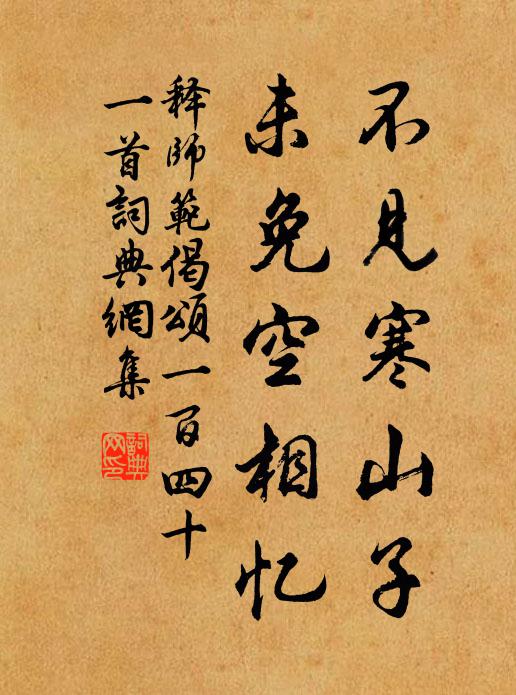 不见寒山子
未免空相忆
释师範偈頌一百四十
一首詞典網集
詞典網印